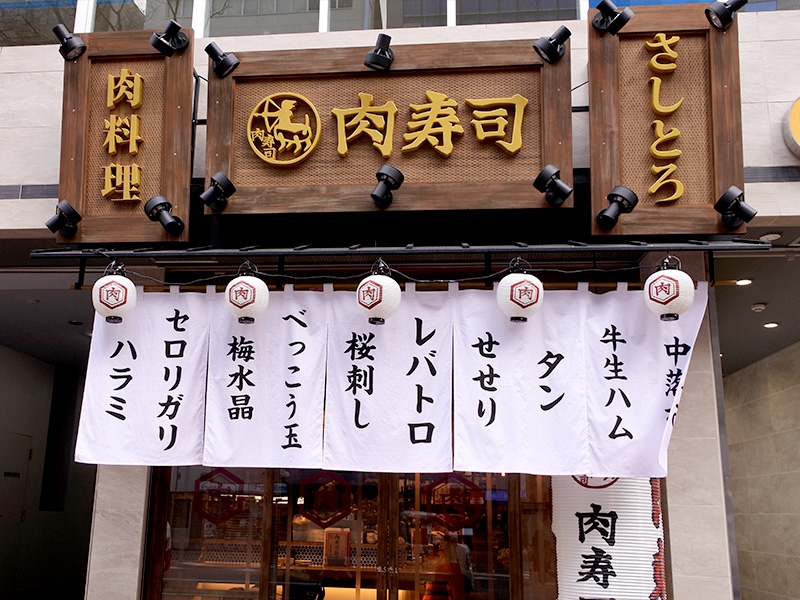 肉料理
肉寿司
肉寿司
さしとろ
肉
肉
肉
肉
肉
中落
牛生ハム
タン
せせり
レバトロ
桜刺し
べっこう玉
梅水晶
セロリガリ
ハラミ
肉寿